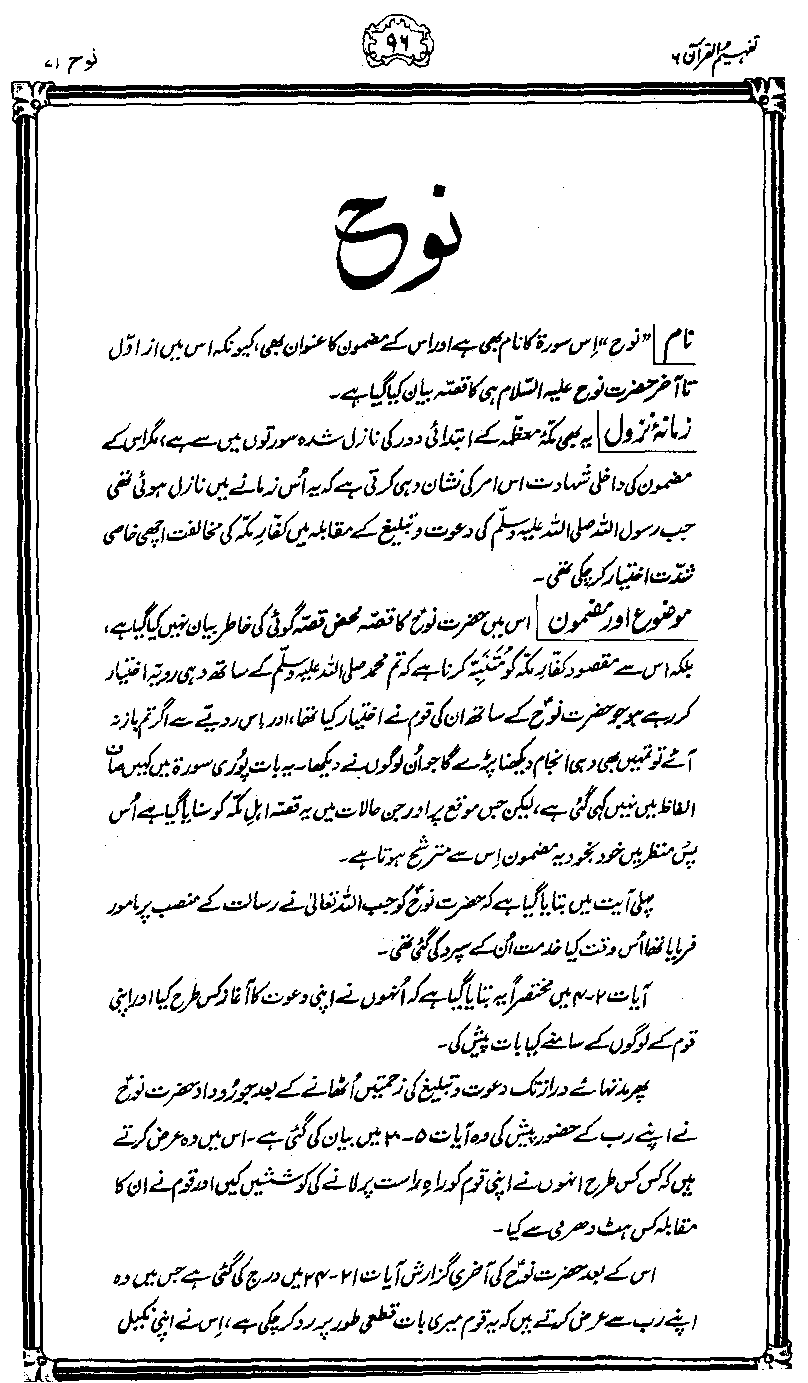 تفہیم القرآن ۶
۹۶
نوح ۷۱
نوح
نام "نوح" اِس سورۃ کا نام بھی ہے اور اس کے مضمون کا عنوان بھی، کیونکہ اس میں از اوّل
تا آخر حضرت نوح علیہ السّلام ہی کا قصّہ بیان کیا گیا ہے۔
زمانۂ نزول یہ بھی مکّۂ معظّمہ کے ابتدائی دور کی نازل شدہ سورتوں میں سے ہے، مگر اس کے
مضمون کی داخلی شہادت اس امر کی نشان دہی کرتی ہے کہ یہ اُس زمانے میں نازل ہوئی تھی
جب رسول اللہ صلی اللہ علیہ وسلّم کی دعوت و تبلیغ کے مقابلہ میں کفّارِ مکّہ کی مخالفت اچھی خاصی
شدّت اختیار کر چکی تھی۔
موضوع اور مضمون اس میں حضرت نوحؑ کا قصّہ محض قصّہ گوئی کی خاطر بیان نہیں کیا گیا ہے،
بلکہ اس سے مقصود کفّارِ مکّہ کو مُتَنَبِّہ کرنا ہے کہ تم محمد صلی اللہ علیہ وسلّم کے ساتھ وہی رویّہ اختیار
کر رہے ہو جو حضرت نوحؑ کے ساتھ ان کی قوم نے اختیار کیا تھا، اور اِس رویّے سے اگر تم باز نہ
آئے تو تمہیں بھی وہی انجام دیکھنا پڑے گا جو اُن لوگوں نے دیکھا۔ یہ بات پُوری سورۃ میں کہیں صاف
الفاظ میں نہیں کہی گئی ہے، لیکن جس موقع پر اور جن حالات میں یہ قصّہ اہلِ مکّہ کو سنایا گیا ہے اُس
پس منظر میں خود بخود یہ مضمون اِس سے مترشح ہوتا ہے۔
پہلی آیت میں بتایا گیا ہے کہ حضرت نوحؑ کو جب اللہ تعالیٰ نے رسالت کے منصب پر مامور
فرمایا تھا اُس وقت کیا خدمت اُن کے سپرد کی گئی تھی۔
آیات ۲-۴ میں مختصراً یہ بتایا گیا ہے کہ اُنہوں نے اپنی دعوت کا آغاز کس طرح کیا اور اپنی
قوم کے لوگوں کے سامنے کیا بات پیش کی۔
پھر مدتہائے دراز تک دعوت و تبلیغ کی زحمتیں اُٹھانے کے بعد جو رُوداد حضرت نوحؑ
نے اپنے رب کے حضور پیش کی وہ آیات ۵-۲۰ میں بیان کی گئی ہے۔ اس میں وہ عرض کرتے
ہیں کہ کس کس طرح انہوں نے اپنی قوم کو راہِ راست پر لانے کی کوششیں کیں اور قوم نے ان کا
مقابلہ کس ہٹ دھرمی سے کیا۔
اس کے بعد حضرت نوحؑ کی آخری گزارش آیات ۲۱-۲۴ میں درج کی گئی ہے جس میں وہ
اپنے رب سے عرض کرتے ہیں کہ یہ قوم میری بات قطعی طور پر رد کر چکی ہے، اِس نے اپنی نکیل